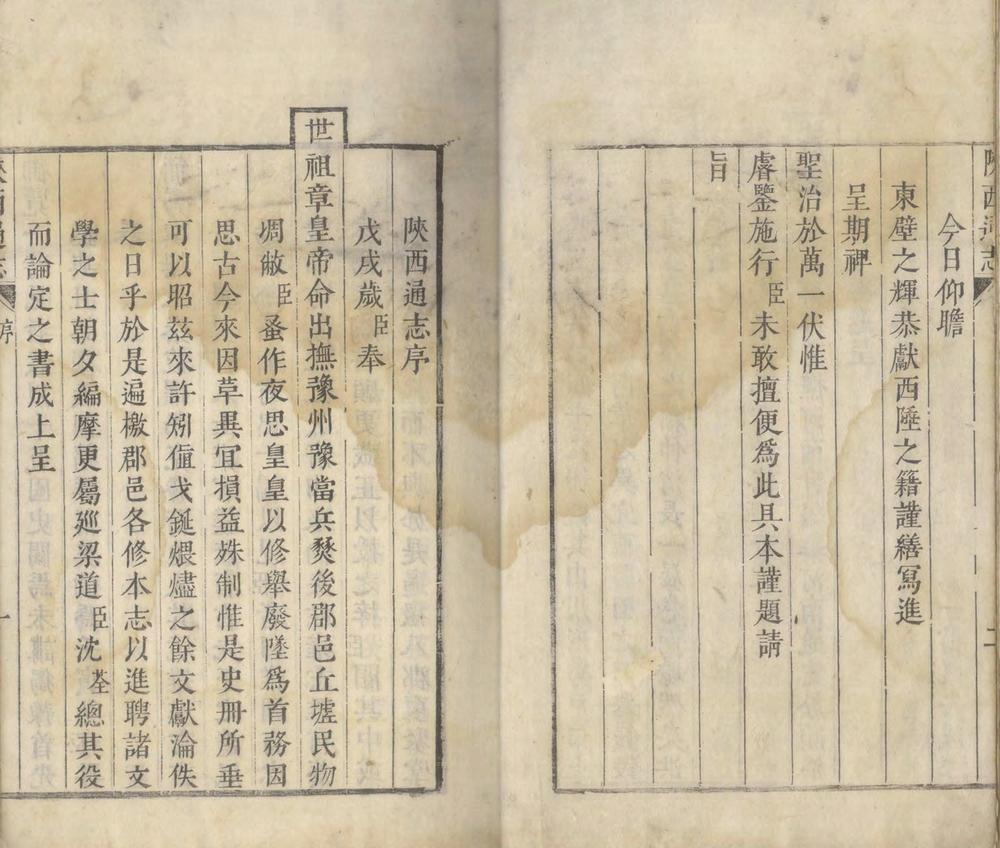 陝西通志
二
今日仰瞻
東壁之輝恭獻西陲之籍謹繕寫進
呈期裨
聖治於萬一伏惟
睿鑒施行臣未敢擅便為此具本謹題請
旨
陝西通志序
戊戌歲臣奉
世祖章皇帝命出撫豫州豫當兵燹後郡邑丘墟民物
凋敝臣蚤作夜思皇皇以修舉廢墜為首務因
思古今來因革異宜損益殊制惟是史冊所垂
可以昭茲來許矧值戈鋋煨燼之餘文獻淪佚
之日乎於是遍檄郡邑各修本志以進聘諸文
學之士朝夕編摩更屬廵梁道臣沈荃總其役
而論定之書成上呈
陝西通志
序
一